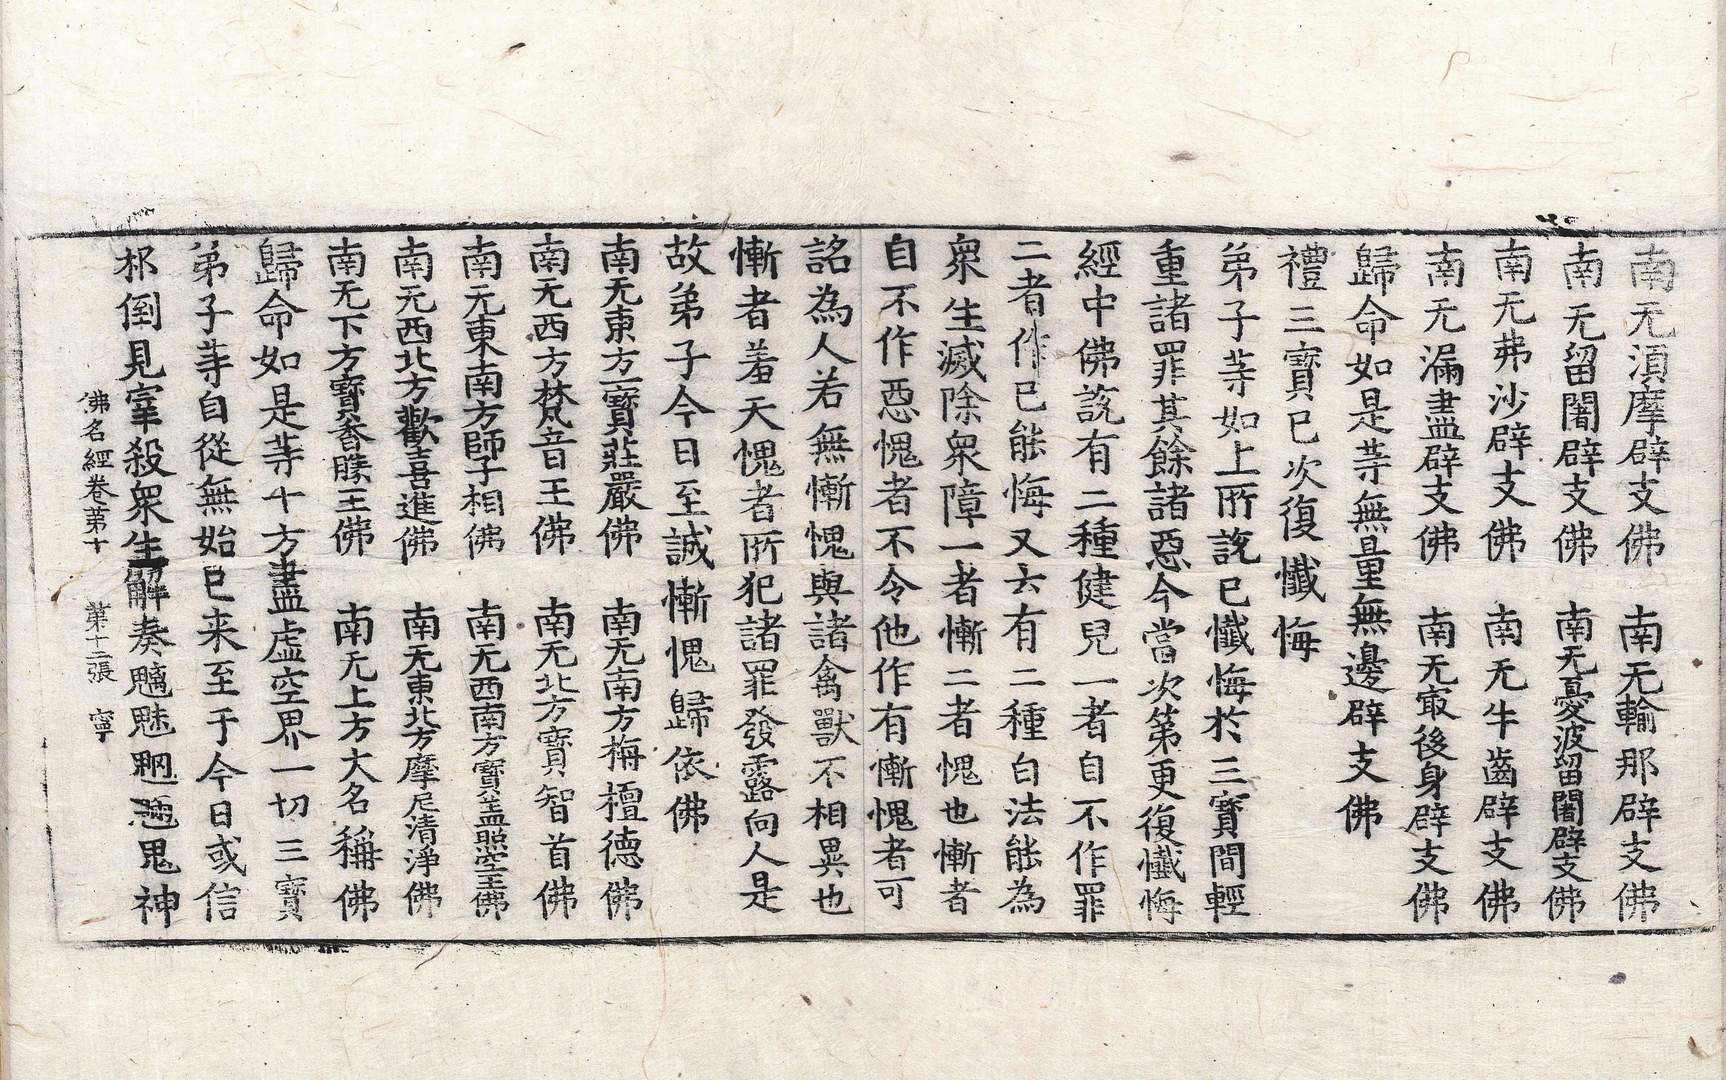 南无湏摩辟支佛　南无輸那辟支佛
南无留闍辟支佛　南无憂波留闍辟支佛
南无弗沙辟支佛　南无牛齒辟支佛
南无漏盡辟支佛　南无㝡後身辟支佛
歸命如是䓁無量無邊辟支佛
禮三寶已次復懺悔
弟子䓁如上所說已懺悔於三寶間輕
重諸罪其餘諸惡今當次第更復懺悔
經中佛說有二種健兒一者自不作罪
二者作已能悔又云有二種白法能為
衆生滅除衆障一者慚二者愧也慚者
自不作惡愧者不令他作有慚愧者可
詺為人若無慚愧與諸禽獸不相異也
慚者羞天愧者所犯諸罪發露向人是
故弟子今日至誠慚愧歸依佛
南无東方寶莊嚴佛　南无南方栴檀德佛
南无西方梵音王佛　南无北方寶智首佛
南无東南方師子相佛　南无西南方寶盖照空王佛
南无西北方歡喜進佛　南无東北方摩尼清淨佛
南无下方寶香勝王佛　南无上方大名稱佛
歸命如是䓁十方盡虛空界一切三寶
弟子䓁自從無始已来至于今日或信
邪倒見宰殺衆生解奏魑魅魍魎鬼神
佛名經卷第十　第十二張　寧